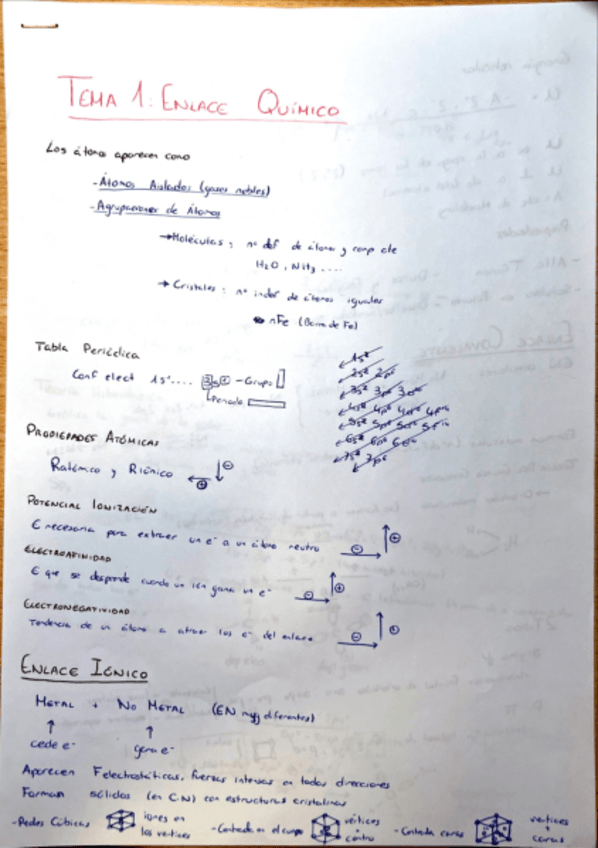 TEMA 1: ENLACE QUÍMICO
Los átomos aparecen como
- Átomos Aislados (gases nobles)
- Agrupaciones de Átomos
→ Moléculas: nº def de átomos y comp cte
H2O, NH3 ....
→ Cristales: nº indef de átomos iguales
nFe (Barra de Fe)
Tabla Periódica
Conf elect 1s².... 3s① - Grupo
Periodo
1s²
2s² 2p⁶
3s² 3p⁶ 3d¹⁰
4s² 4p⁶ 4d¹⁰ 4f¹⁴
5s² 5p⁶ 5d¹⁰ 5f¹⁴
6s² 6p⁶ 6d¹⁰
7s² 7p⁶
PROPIEDADES ATÓMICAS
Ratómico y Riónico
POTENCIAL IONIZACIÓN
E necesaria para extraer un e⁻ a un átomo neutro
ELECTROAFINIDAD
E que se desprende cuando un ión gana un e⁻
ELECTRONEGATIVIDAD
Tendencia de un átomo a atraer los e⁻ del enlace
ENLACE IÓNICO
METAL + NO METAL (EN muy diferentes)
↑ ↑
cede e⁻ gana e⁻
Aparecen Felectrostáticas, fuerzas intensas en todas direcciones
Forman sólidos (en C.N) con estructuras cristalinas
- Redes Cúbicas iones en los vértices - Centrada en el cuerpo vértices + centro - Centrada caras vértices + caras